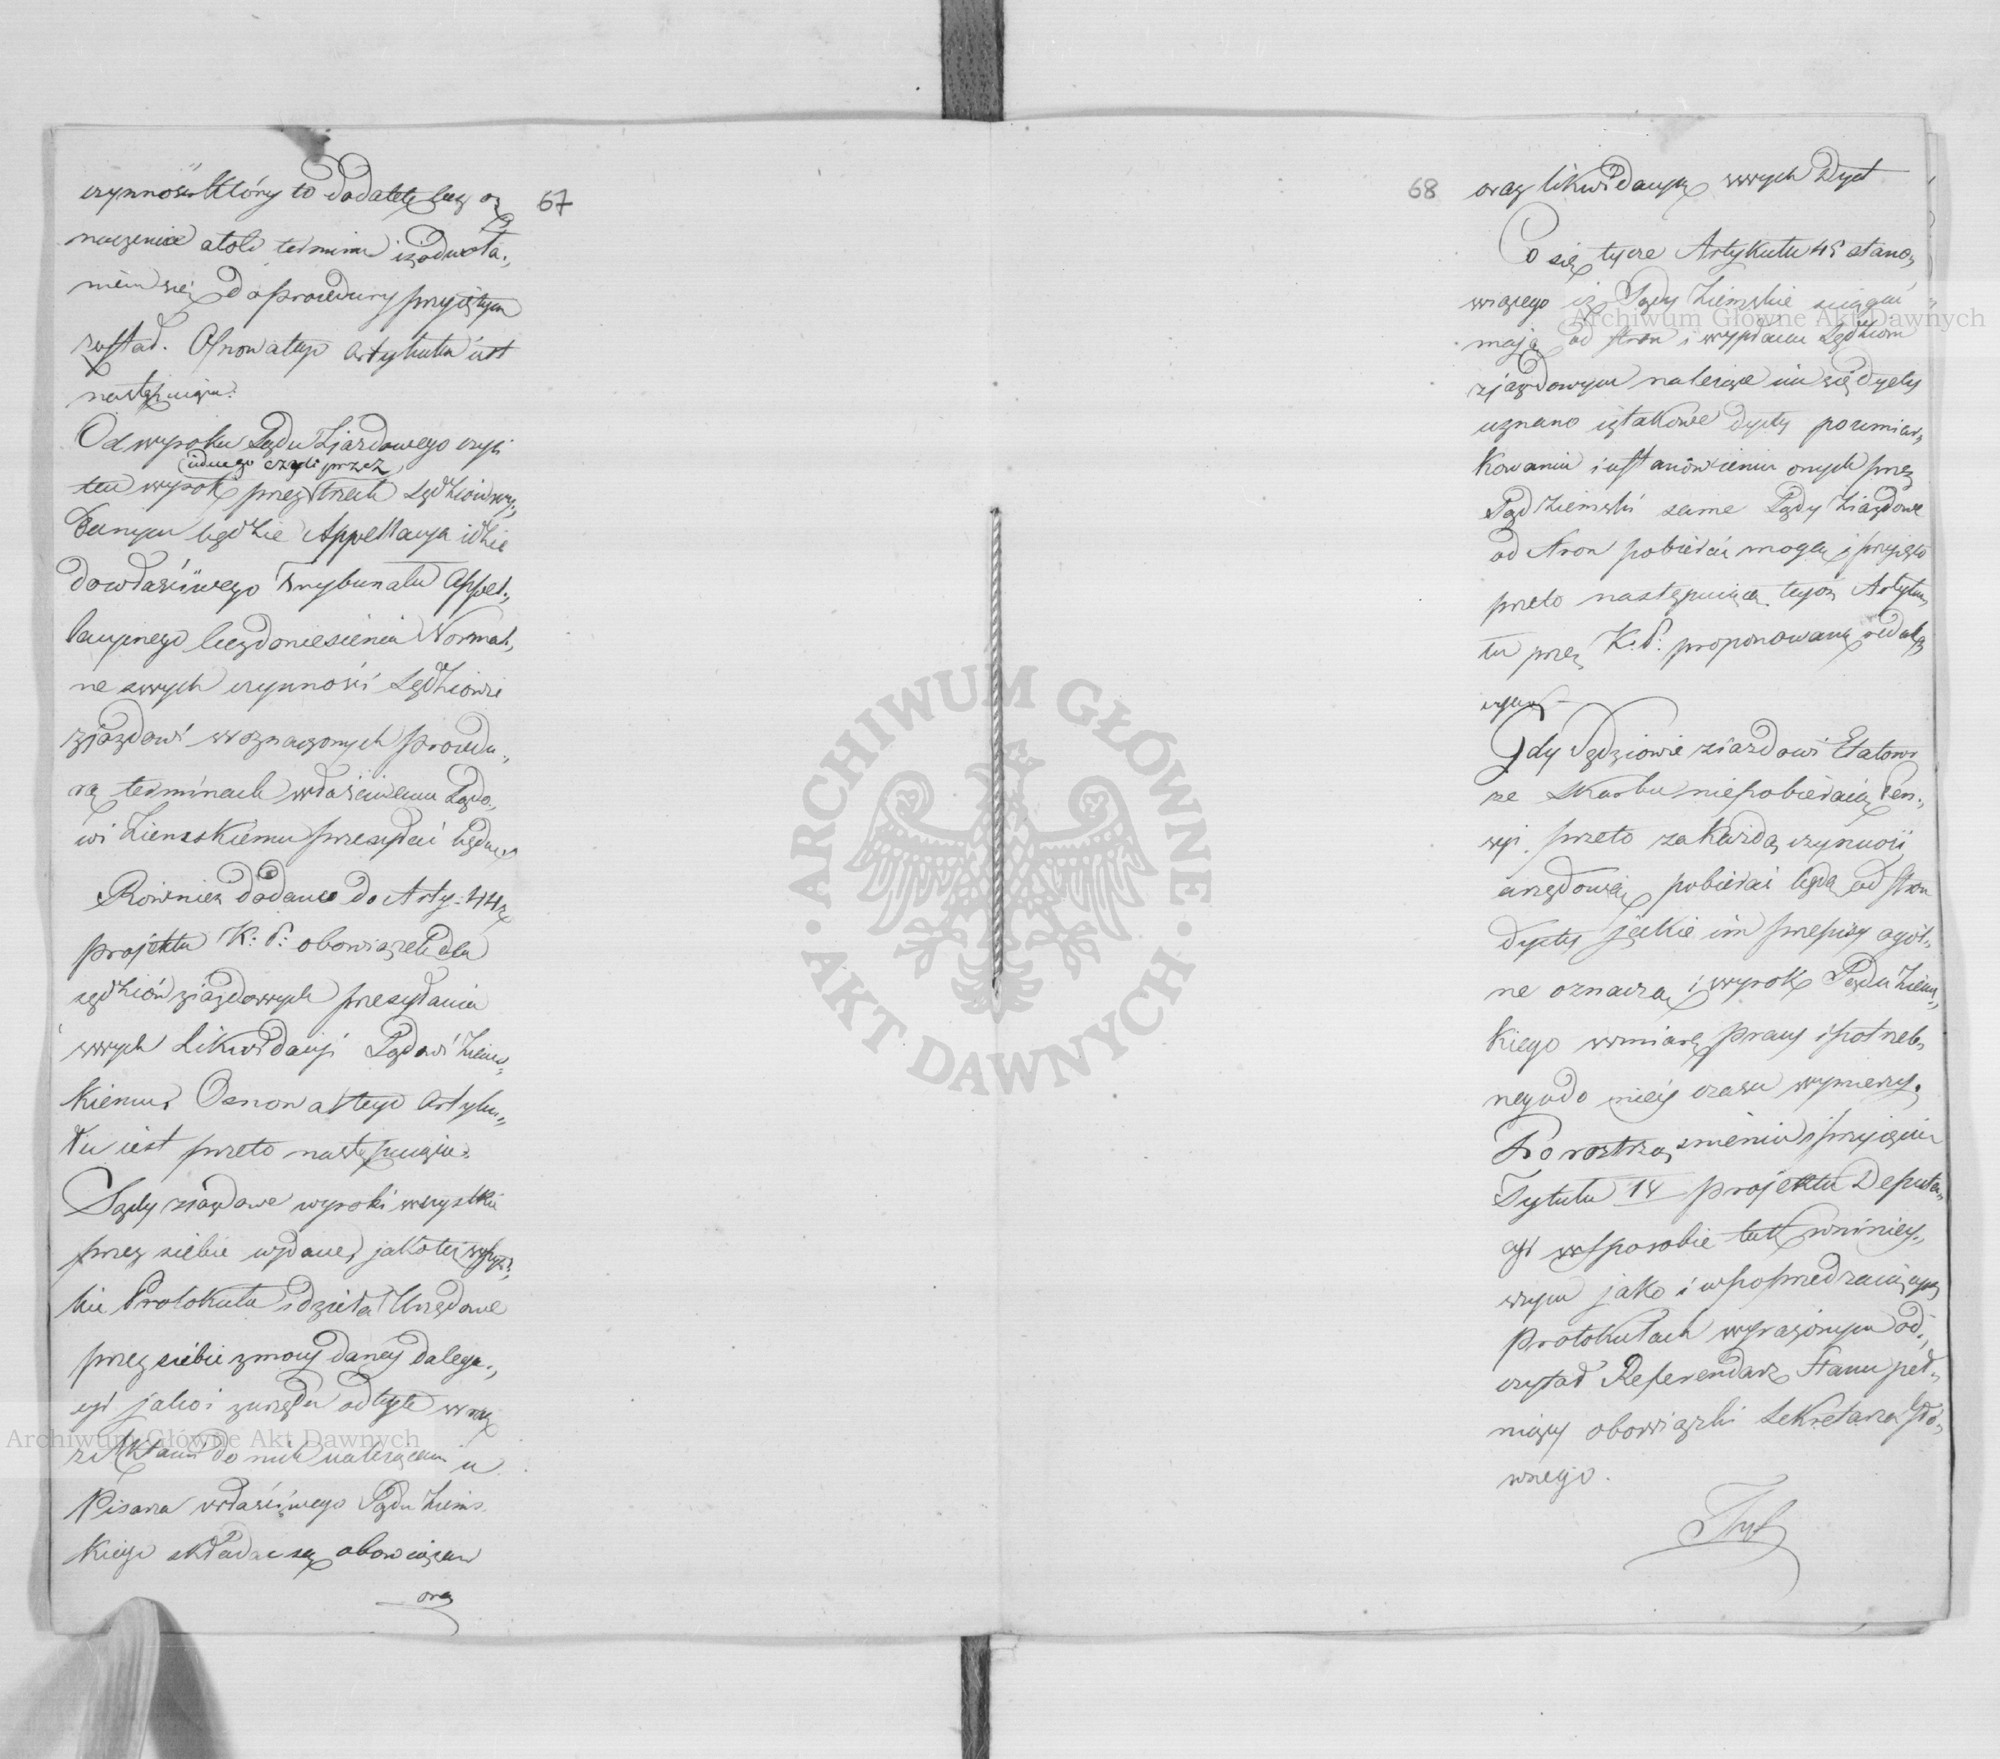 czynności który to dodatek bez oz 67
naczenia atoli terminu i z odwoła„
niem się do procedury przyiętym
został. Osnowa tego artykułu iest
następująca:
Od wyroku Sądu Zjazdowego czyli
iednego czyli przez
ten wyrok przez trzech Sędziów wy„
danym będzie Appellacya idzie
do właściwego Trybunału Appel„
lacyinego bez doniesienia Normal„
ne swych czynności Sędziowie
zjazdowi w oznaczonych procedu„
rą terminach właściwemu Sądo„
wi Ziemskiemu przesyłać będą
Również dodano do Arty: 44 z
projektu K: P: obowiązek dla
sędziów zjazdowych przesyłania
swych Likwidacyi Sądowi Ziems„
kiemu. Osnowa tego Artyku„
łu iest przeto następuiąca.
Sądy ziazdowe wyroki wszystkie
przez siebie wydane, jako też wszyst„
kie Protokuła i dzieła Urzędowe
przez siebie z mocy daney delega„
cyi jako i z urzędu odbyte wraz
z Aktami do nich należącemi u
Pisarza właściwego Sądu Ziems„
kiego składać są obowiązane
oraz
68 oraz likwidacyą swych Dyet
Co się tycze Artykułu 45 stano„
wiącego iż Sądy Ziemskie ściągać
mają od stron i wypłacać Sędziom
zjazdowym należące im się dyety
uznano iż takowe dyety po umiar„
kowaniu i ustanowieniu onych przez
Sąd Ziemski same Sądy Ziazdowe
od stron pobierać mogą i przyięto
przeto następuiącą tegoż Artyku„
łu przez K: P: proponowaną redak„
cyą
Gdy Sędziowie ziazdowi Etatowey
ze Skarbu niepobieraią Pen„
syi, przeto za każdą czynność
urzędową pobierać będą od stron
dyety jakie im przepisy ogól„
ne oznaczą i wyrok Sądu Ziems„
kiego w miarę pracy i potrzeb„
nego do niey czasu wymierzy.
Po roztrząśnieniu i przyięciu
Tytułu IV projektu Deputa„
cyi w sposobie tak w niniey„
szym jako i w poprzedzaiących
Protokułach wyrażonym od„
czytał Referendarz Stanu peł„
niący obowiązki Sekretarza Głó„
wnego.
Tyt
Archiwum Główne Akt Dawnych
Archiwum Główne Akt Dawnych
ARCHIWUM GŁÓWNE · AKT DAWNYCH ·